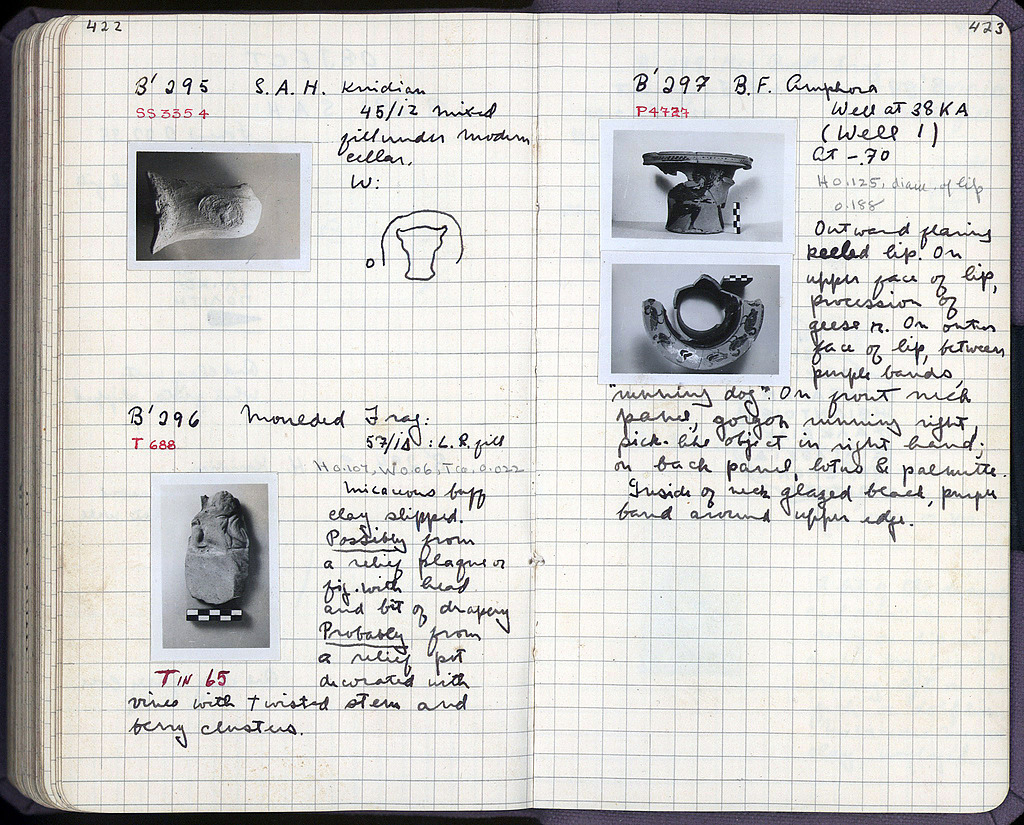 422
B' 295 S.A.H. Knidian
SS 3354
45/12 mixed
fill under modern
cellar.
W:
B' 296 Moulded Frag:
T 688
57/ : L.R. fill
H 0.107, W 0.06, 0.022
Micaceous buff
clay slipped.
Possibly from
a relief plaque or
fig. with head
and bit of drapery
Probably from
a relief pot
decorated with
TIN 65
vines with twisted stem and
berry clusters.
423
B' 297 B.F. Amphora
P4727
Well at 38 KA
(Well 1)
at -.70
H 0.125, diam. of lip
0.188
Outward flaring
keeled lip. On
upper face of lip,
procession of
geese r. On outer
face of lip, between
purple bands,
"running dog". On front neck
panel, gorgon running right,
pick-like object in right hand;
on back panel, lotus & palmette.
Inside of neck glazed black, purple
band around upper edge.